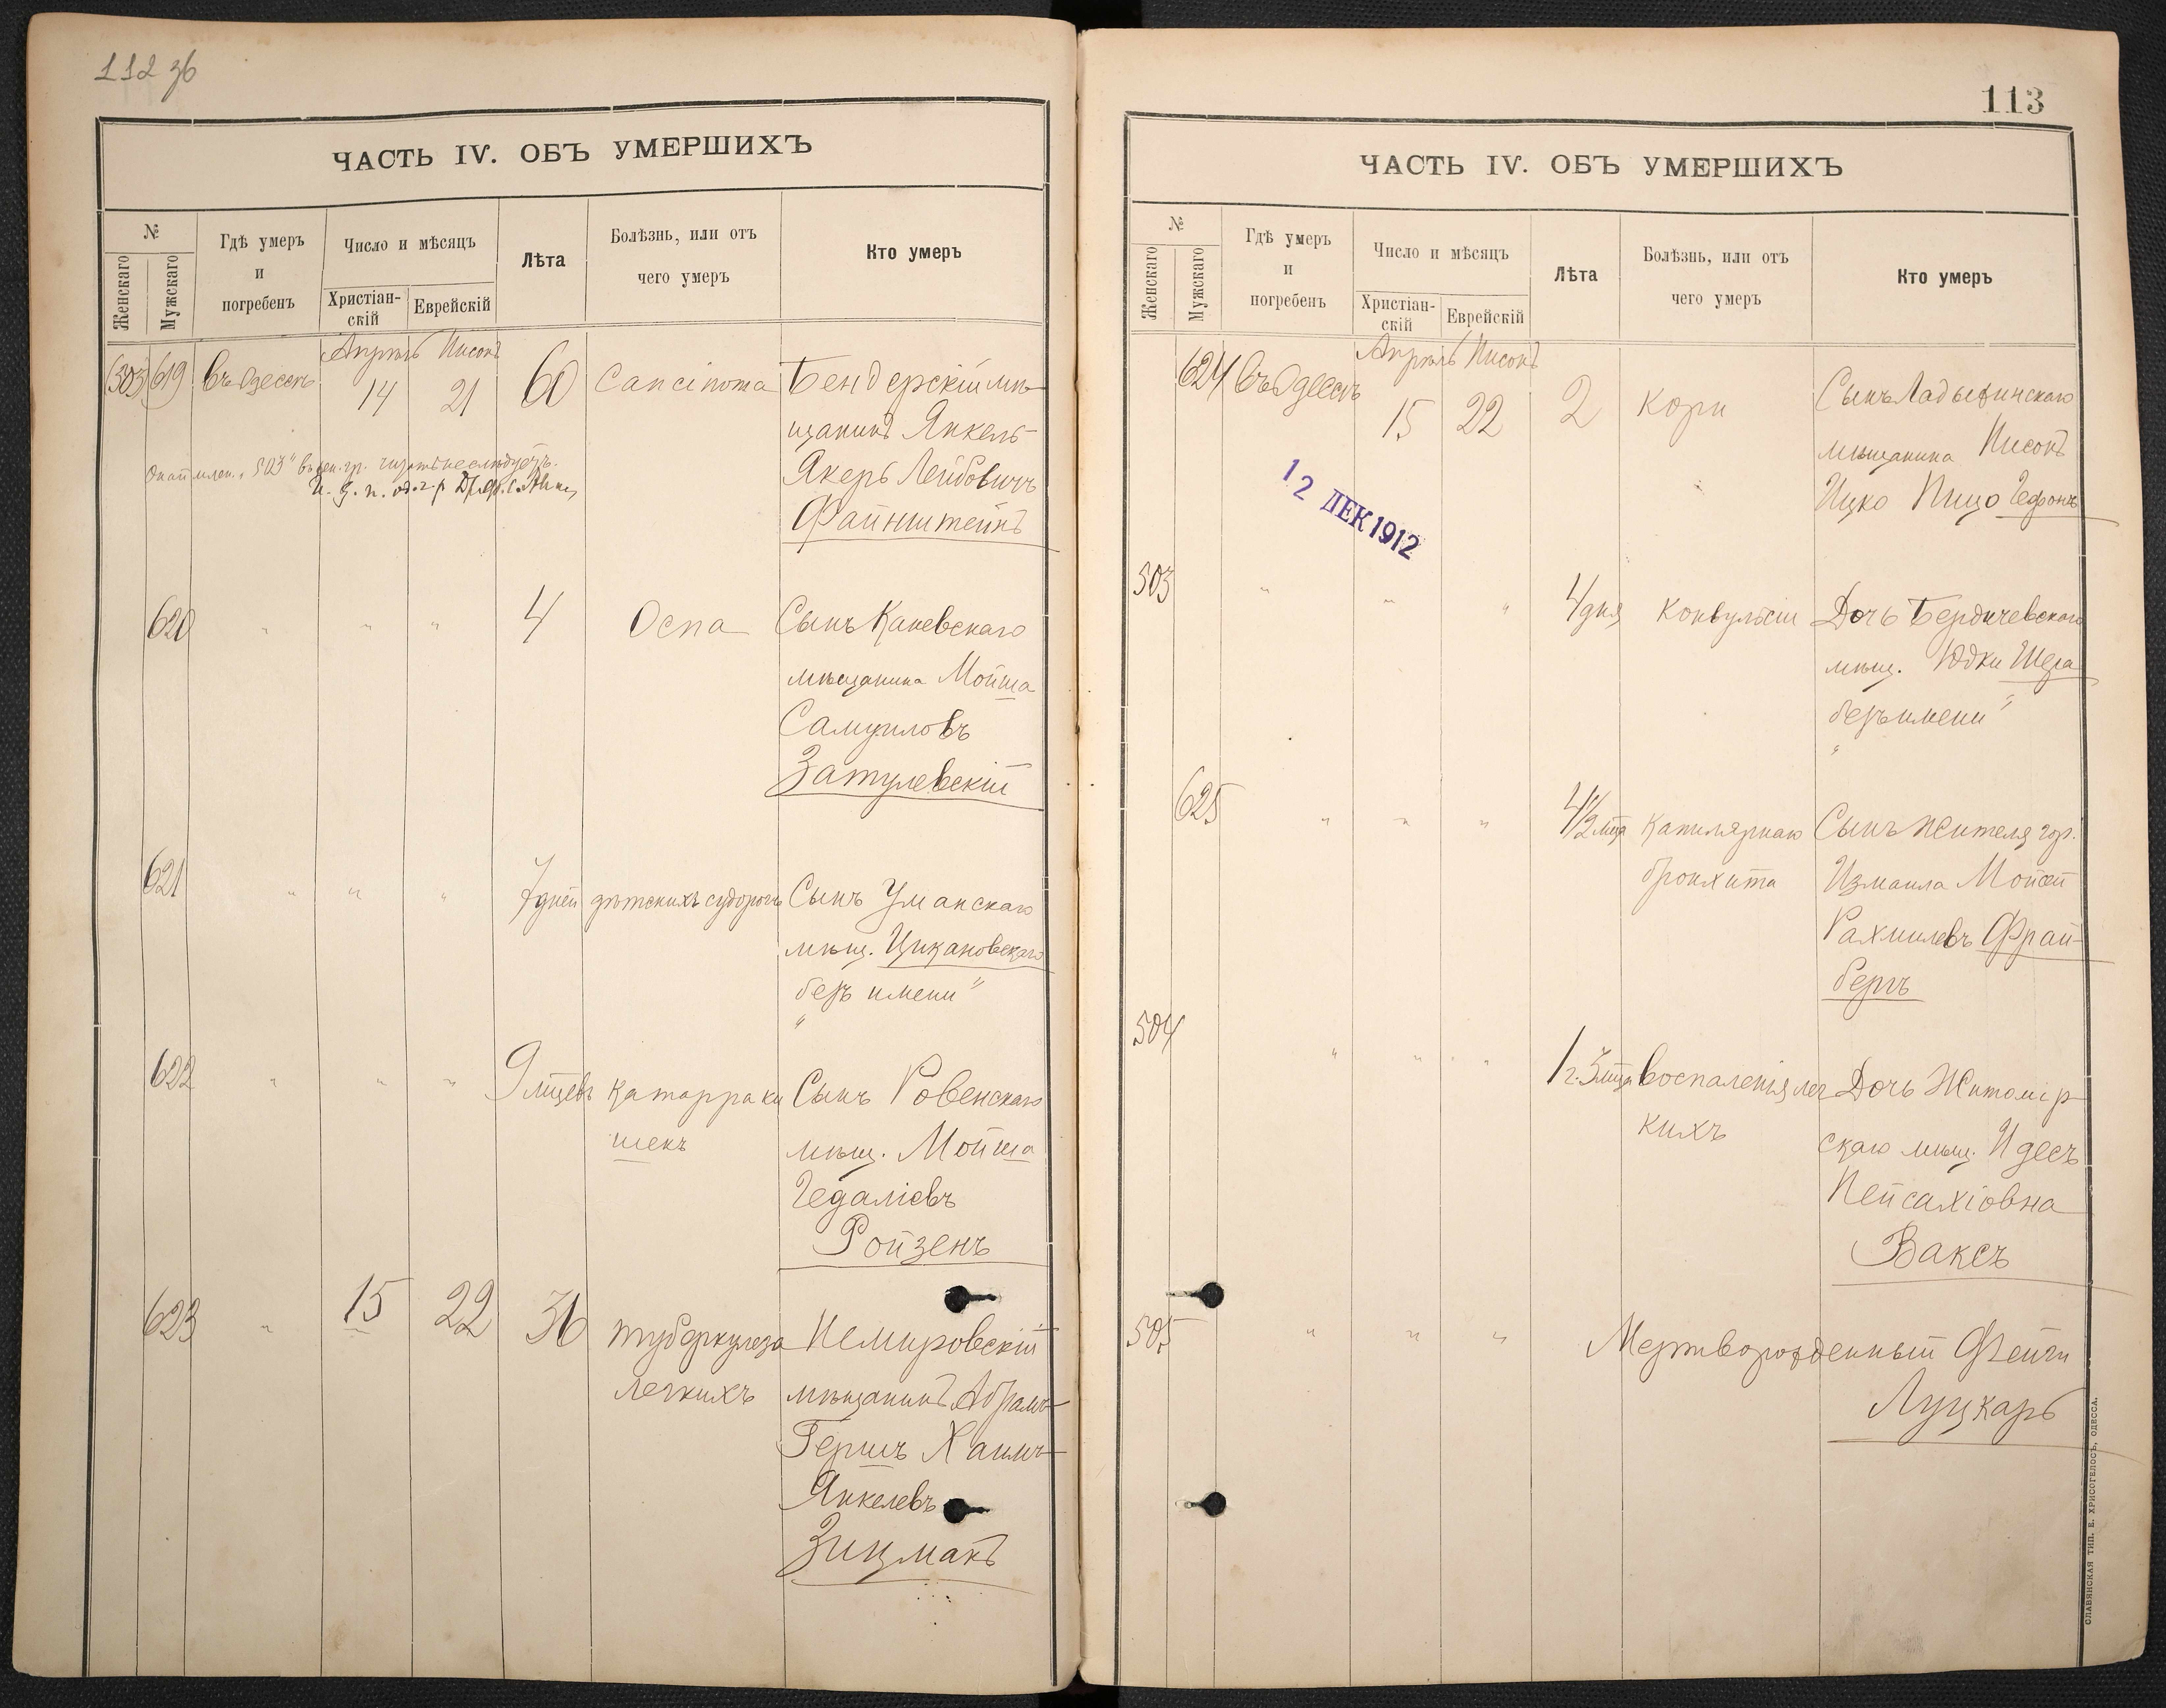 112 36
ЧАСТЬ IV. ОБЪ УМЕРШИХЪ
№
Женскаго
Мужскаго
Гдѣ умеръ
и
погребенъ
Число и мѣсяцъ
Христіан-
скій
Еврейскій
Лѣта
Болѣзнь, или отъ
чего умеръ
Кто умеръ
Апрѣль Нисонъ
(503) 619 Въ Одессѣ 14 21 60 Cancinoma Бендерскій мѣ-
щанинъ Янкель-
Якеръ Лейбовичъ
Файнштейнъ
620 " " " 4 Оспа Сынъ Каневскаго
мѣщанина Мойша
Самуиловъ
Затулевскій
621 " " " 7 дней дѣтскихъ судорогъ Сынъ Уманскаго
мѣщ. Цикановскаго
"безъ имени"
622 " " " 9 мцевъ катарра ки Сынъ Ровенскаго
шекъ мѣщ. Мойша
Гедаліевъ
Ройзенъ
623 " 15 22 36 туберкулеза Немировскій
легкихъ мѣщанинъ Абрамъ-
Гершъ Хаимъ-
Янкелевъ
Зицманъ
113
ЧАСТЬ IV. ОБЪ УМЕРШИХЪ
№
Женскаго
Мужскаго
Гдѣ умеръ
и
погребенъ
Число и мѣсяцъ
Христіан-
скій
Еврейскій
Лѣта
Болѣзнь, или отъ
чего умеръ
Кто умеръ
Апрѣль Нисонъ
624 Въ Одессѣ 15 22 2 Кори Сынъ Ладыжинскаго
мѣщанина Нисонъ
Ицко
12 ДЕК 1912
503 " " " 4 дня Конвульсіи Дочь Бердичевскаго
мѣщ. Юдки Шера
"безъ имени"
625 " " " 4 1/2 мца Капилярнаго Сынъ жителя гор.
бронхита Измаила Мойсей
Рахмилевъ Фрай-
бергъ
504 " " " 1 г. 3 мца Воспаленія лег Дочь Житомір-
кихъ скаго мѣщ. Идесъ
Пейсахіовна
Ваксъ
505 " " " Мертворожденный Фейги
Луцкаръ
СЛАВЯНСКАЯ ТИП. Е. ХРИСОГЕЛОСЪ, ОДЕССА.